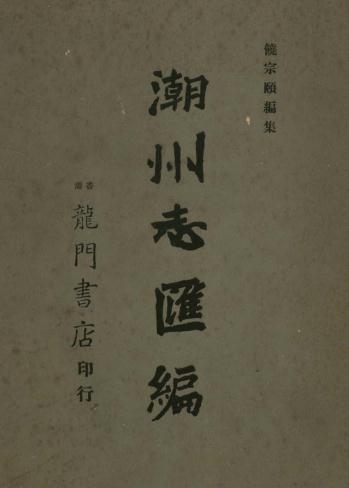 饒宗頤編集
潮州志匯編
香港
龍門書店印行